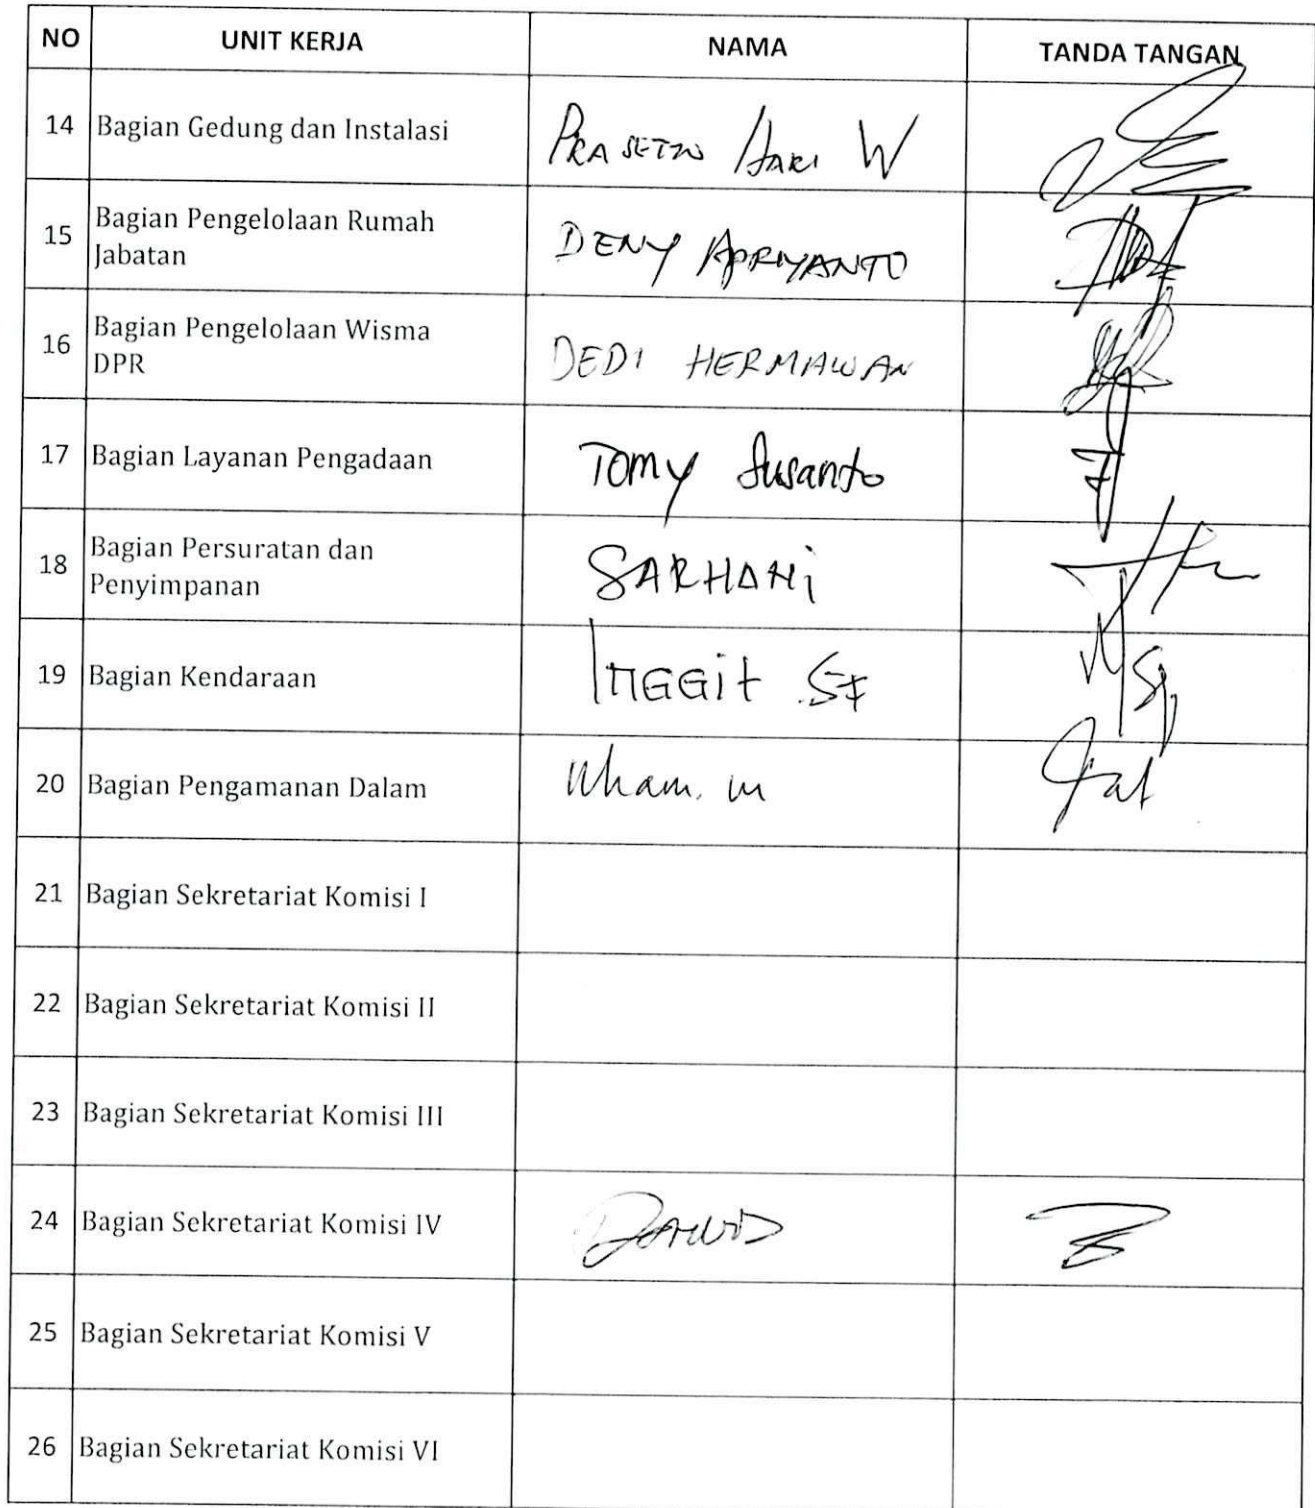 NO UNIT KERJA NAMA TANDA TANGAN
14 Bagian Gedung dan Instalasi PRASETYO HARI W
15 Bagian Pengelolaan Rumah
Jabatan DENY APRIYANTO
16 Bagian Pengelolaan Wisma
DPR DEDI HERMAWAN
17 Bagian Layanan Pengadaan Tomy Susanto
18 Bagian Persuratan dan
Penyimpanan SARHANi
19 Bagian Kendaraan INGGit
20 Bagian Pengamanan Dalam
21 Bagian Sekretariat Komisi I
22 Bagian Sekretariat Komisi II
23 Bagian Sekretariat Komisi III
24 Bagian Sekretariat Komisi IV
25 Bagian Sekretariat Komisi V
26 Bagian Sekretariat Komisi VI